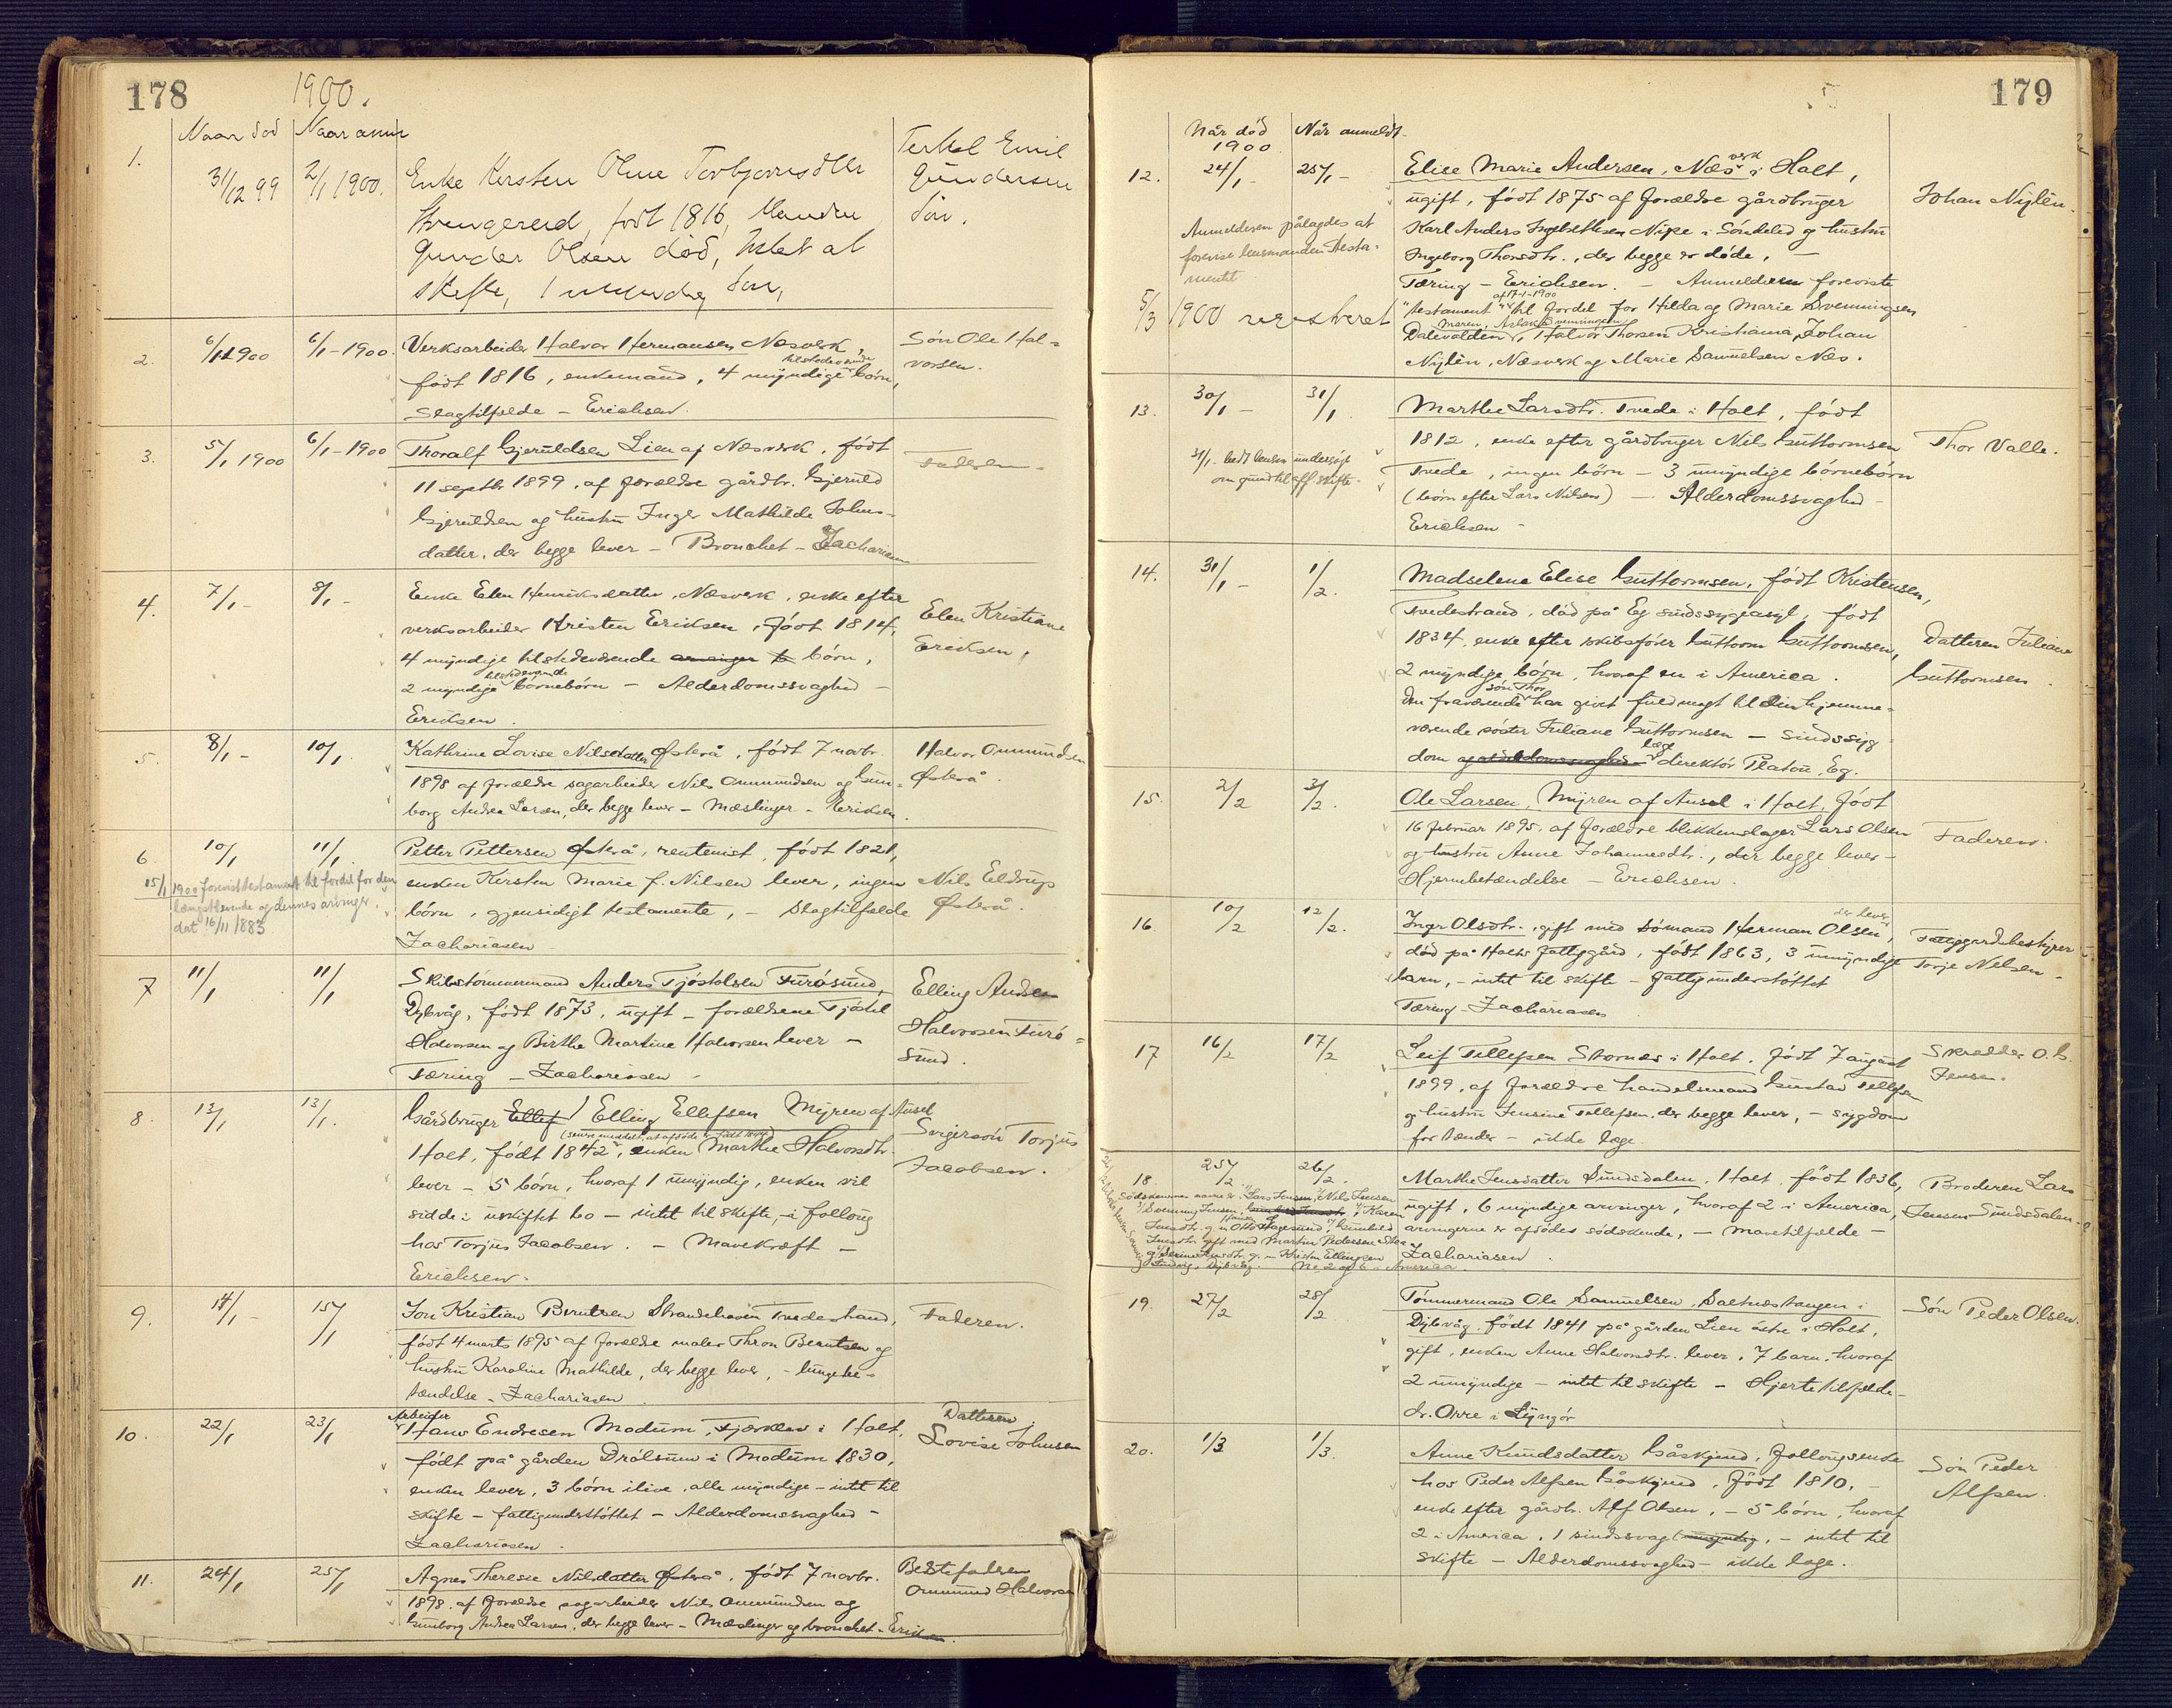 178
1900.
Naar død Naar anm
1.
31/12 99 2/1 1900.
Enke Kersten Oline Torbjørnsdtr
født 1816, Manden
Gunder Olsen død, Intet at
skifte, 1 myndig Søn,
Terkel Emil
Gundersen
Søn.
2. 6/1 1900 6/1-1900.
Verksarbeider Halvor Hermansen Næsverk,
tilstedeværende
født 1816, enkemand, 4 myndige børn,
Slagtilfælde - Erichsen.
Søn Ole Hal-
vorsen.
3. 5/1 1900 6/1-1900
Thoralf Gjeruldsen Lien af Næsverk, født
11 septbr 1899, af forældre gårdbr. Gjeruld
Gjeruldsen og hustru Inger Mathilde Johns-
datter, der begge lever - Bronchet - Zachariasen
Faderen
4. 7/1- 8/1-
Enke Elen Henriksdatter, Næsverk, enke efter
verksarbeider Kristen Eriksen, født 1814,
4 myndige tilstedeværende børn,
tilstedeværende
2 myndige børnebørn - Alderdomssvaghed -
Eriksen.
Elen Kristiane
Eriksen,
5. 8/1- 10/1
Kathrine Lovise Nilsdatter Østerå, født 7 novbr.
1898 af forældre sagarbeider Nils Ommundsen og Gun-
borg Andrea Larsen, der begge lever - Mæslinger - Eriksen.
Halvor Ommundsen
Østerå.
6. 10/1 11/1
Petter Pettersen Østerå, rentenist, født 1821,
enken Kirsten Marie f. Nilsen lever, ingen
børn, gjensidigt testamente, - Slagtilfælde
Zachariasen
Nils Eldrup
Østerå.
15/1 1900 forevist testament til fordel for den
længstlevende og dennes arvinger.
dat 16/11 1883
7 11/1 11/1
Skibstømmermand Anders Tjøstolsen Furøsund,
Dybvåg, født 1873, ugift - forældrene Tjøstel
Halvorsen og Birthe Martine Halvorsen lever -
Tæring - Zachariasen -
Elling Anders
Halvorsen Furø-
sund.
8. 13/1 13/1.
Gårdbruger Ellef / Elling Ellefsen Myren af Ausel
Holt, født 1842, enken Marthe Halvorsdtr.
lever - 5 børn, hvoraf 1 umyndig, enken vil
sidde i uskiftet bo - intet til skifte, - i folloug
hos Torjus Jacobsen. - Mavekræft -
Erichsen.
Svigersøn Torjus
Jacobsen.
9. 14/1- 15/1
Jon Kristian Berntsen Strandeheien Tvedestrand,
født 4 marts 1895 af forældre maler Thron Berntsen og
hustru Karoline Mathilde, der begge lever, - lungebe-
tændelse - Zachariasen
Faderen.
10. 22/1 23/1
Arbeider
Hans Endresen Modum, Fjærkleiv i Holt,
født på gården Drølsum i Modum 1830,
enken lever, 3 børn ilive, alle myndige - intet til
skifte - fattigunderstøttet - Alderdomssvaghed -
Zachariasen.
Datteren
Lovise Johnsen
11. 24/1 25/1
Agnes Therese Nilsdatter Østerå, født 7 novbr.
1898, af forældre sagarbeider Nils Ommundsen og
Gunborg Andrea Larsen, der begge lever - Mæslinger og bronchet - Eriksen.
Bedstefaderen
Ommund Halvorsen
179
Når død Når anmeldt.
1900
12. 24/1- 25/1-
Elise Marie Andersen, Næsverk i Holt,
ugift, født 1875 af forældre gårdbruger
Karl Anders Ingebrethsen Nipe i Søndeled og hustru
Ingeborg Thorsdtr., der begge er døde, -
Tæring - Erichsen. - Anmelderen foreviste
af 17-1-1900
testament til fordel for Hilda og Marie Svenningsen
Maren, Aslak Svenningsen
Dalevolden, Halvor Thorsen Kristiania, Johan
Nylèn, Næsverk og Marie Samuelsen Næs.
Johan Nylèn.
Anmelderen pålagdes at
forevise lensmanden testa-
mentet
5/3 1900 registreret
13. 30/1- 31/1.
Marthe Larsdtr. Tvede i Holt, født
1812, enke efter gårdbruger Nils Guttormsen
Tvede, ingen børn - 3 umyndige børnebørn
(børn efter Lars Nilsen) - Alderdomssvaghed -
Erichsen -
Thor Valle.
31/1. bedt lensm undersøge
om grund til off. skifte.
14. 31/1- 1/2.
Madselene Elise Guttormsen, født Kristensen,
Tvedestrand, død på Eg sindssygeasyl, født
1834, enke efter skibsfører Guttorm Guttormsen,
2 myndige børn, hvoraf en i America.
søn Thor
den fraværende har givet fuldmagt til sin hjemme-
værende søster Juliane Guttormsen - Sindssyg-
læge
dom og alderdomssvaghed - direktør Platou, Eg.
Datteren Juliane
Guttormsen.
15. 2/2 3/2.
Ole Larsen, Myren af Ausel i Holt, født
16 februar 1895, af forældre blikkenslager Lars Olsen
og hustru Anne Johannesdtr., der begge lever -
Hjernebetændelse - Erichsen.
Faderen.
16. 10/2 12/2.
der lever
Inger Olsdtr. gift med sømand Herman Olsen,
død på Holts fattiggård, født 1863, 3 umyndige
barn, - intet til skifte - fattigunderstøttet
Tæring - Zachariasen
Fattiggårdsbestyrer
Torje Nilsen -
17 16/2 17/2
Leif Tellefsen Stornes i Holt, født 7 august
1899, af forældre handelsmand Gustav Tellefsen
og hustru Jensine Tellefsen, der begge lever, - sygdom
for tænder - ikke læge.
Skrædder O. G.
Jensen.
18. 25/2 26/2.
Marthe Jensdatter Sundsdalen, Holt, født 1836,
ugift, 6 myndige arvinger, hvoraf 2 i America,
arvingerne er afdødes sødskende, - mavetilfælde -
Zachariasen.
Broderen Lars
Jensen Sundsdalen.
Sødskenenes navne er: Lars Jensen, Nils Jensen
Svenning Jensen, Karen
Jensdtr. Gunhild
Jensdtr. gift med Martin Pedersen
No 2 og 6 i America.
19. 27/2 28/2
Tømmermand Ole Samuelsen, Saltnestangen i
Dybvåg, født 1841 på gården Lien østre i Holt,
gift, enken Anne Halvorsdtr. lever, 7 barn, hvoraf
2 umyndige - intet til skifte - Hjertetilfælde -
dr. Orre i Lyngør
Søn Peder Olsen.
20. 1/3 1/3.
Anne Knudsdatter Gåskjend, follougsenke
hos Peder Alfsen Gåskjend, født 1810, -
enke efter gårdbr. Alf Olsen, - 5 børn, hvoraf
2 i America, 1 sindssvag (umyndig, - intet til
skifte - Alderdomssvaghed - ikke læge.
Søn Peder
Alfsen.